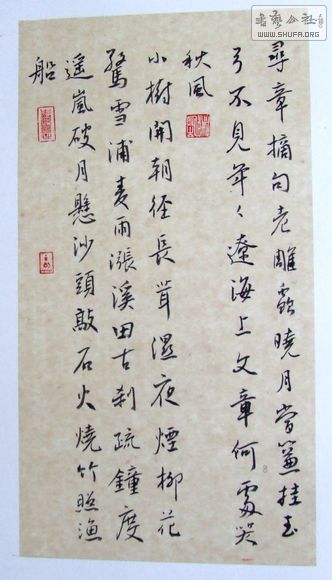 尋章摘句老雕蟲曉月當簾挂玉
弓不見年々遼海上文章何處哭
秋風
小樹開朝徑長茸濕夜煙柳花
驚雪浦麦雨漲溪田古刹疏鐘度
遥嵐破月懸沙頭敲石火燒竹照漁
船
WWW.SHUFA.ORG